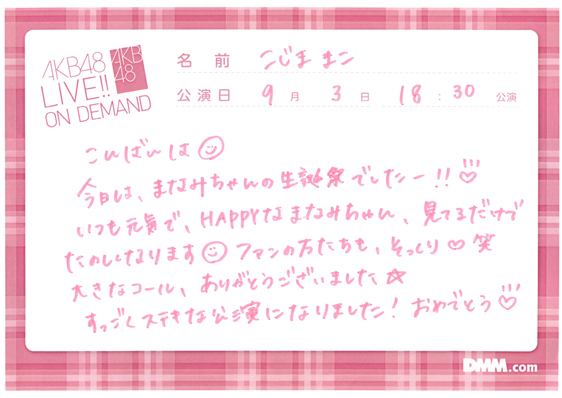 AKB48
LIVE!!
ON DEMAND
AKB
48
名 前 こじま まこ
公演日 9 月 3 日 18 : 30 公演
こんばんは☺
今日は、まなみちゃんの生誕祭でしたー!!♡
いつも元気で、HAPPYなまなみちゃん、見てるだけで
たのしくなります☺ ファンの方たちも、そっくり♡笑
大きなコール、ありがとうございました☆
すっごくステキな公演になりました! おめでとう♡
DMM.com